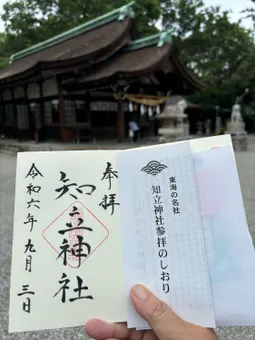 奉拝
知立神社
令和六年九月三日
東海の名社
知立神社参拝のしおり